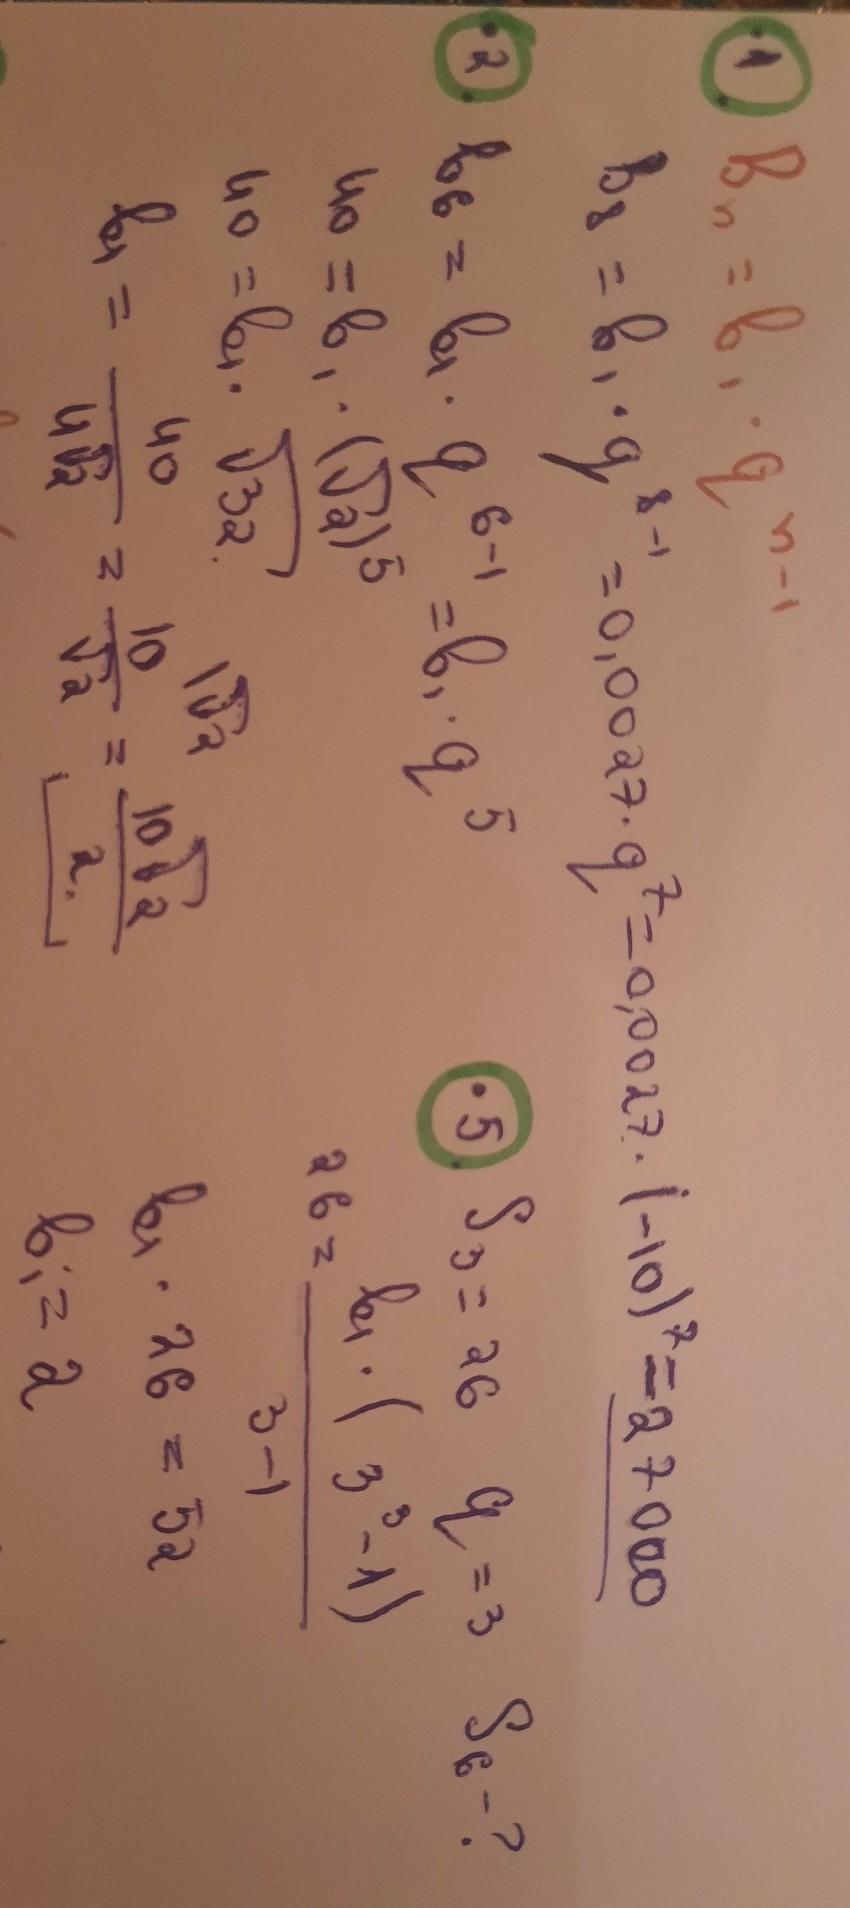 1. Bₙ = b₁ · q^(n-1)
b₈ = b₁ · q^(8-1) = 0,0027 · q⁷ = 0,0027 · (-10)⁷ = 27000
2. b₆ = b₁ · q^(6-1) = b₁ · q⁵
40 = b₁ · (√2)⁵
40 = b₁ · √32.
1√2
b₁ = 40/4√2 = 10/√2 = 10√2/2.
5. S₃ = 26 q = 3 S₆ - ?
26 = b₁ · (3³ - 1)/3 - 1
b₁ · 26 = 52
b₁ = 2